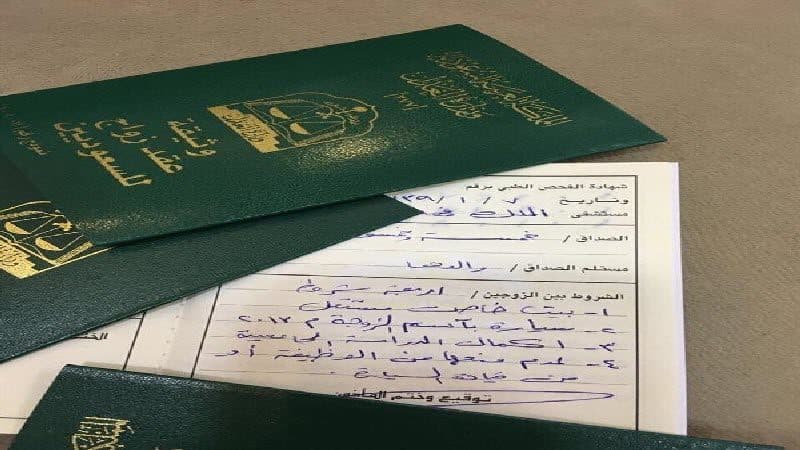 المملكة العربية السعودية
وزارة العدل
وثيقة
عقد زواج
للسعوديين
شهادة الفحص الطبي برقم
وتاريخ ٧ / ١ /
مستشفى الملك
الصداق / خمسة
مستلم الصداق /
الشروط بين الزوجين / اربعة شروط
١- بيت خاص مستقل
٢- سيارة بأسم الزوجة م ٢٠١٣
٣- اكمال الدراسة
٤- عدم منعها من الوظيفة أو
من قيادة السيارة .
توقيع وختم المأذون